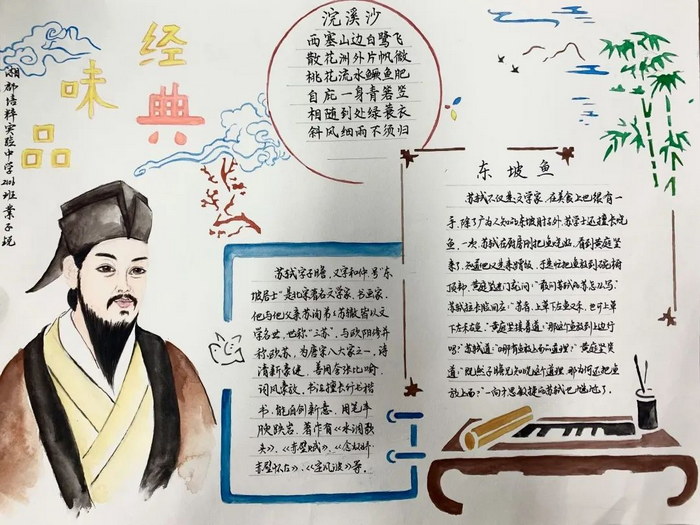 品味经典
浣溪沙
西塞山边白鹭飞
散花洲外片帆微
桃花流水鳜鱼肥
自庇一身青箬笠
相随到处绿蓑衣
斜风细雨不须归
东坡鱼
苏轼不仅是文学家,在美食上也很有一
手,除了广为人知的东坡肘子外,苏学士还擅长烧
鱼。一次,苏轼在厨房刚把鱼烧好,看到黄庭坚
来了,知道他又是来蹭饭,于是忙把鱼放到碗橱
顶部,黄庭坚进门就问:"敢问苏轼的苏怎么写"
苏轼拉长脸回应:"苏者,上草下左鱼又禾。也可上草
下左禾右鱼。"黄庭坚接着道:"那这个鱼放到上边行
吗?"苏轼道:"哪有鱼放上面的道理?"黄庭坚笑
道:"既然子瞻兄知晓这个道理,那为何还把鱼
放上面?"一向才思敏捷的苏轼也输过了
苏轼字子瞻,又字和仲,号"东
坡居士"是北宋著名文学家、书画家,
他与他父亲苏洵弟弟苏辙皆以文
学名世,世称"三苏",与欧阳修并
称欧苏,为唐宋八大家之一,诗
清新豪健,善用夸张比喻,
词风豪放,书法擅长行书楷
书,能自创新意,用笔丰
腴跌宕,著作有《水调歌
头》、《赤壁赋》、《念奴娇
赤壁怀古》、《定风波》等。
湘郡培粹实验中学2111班